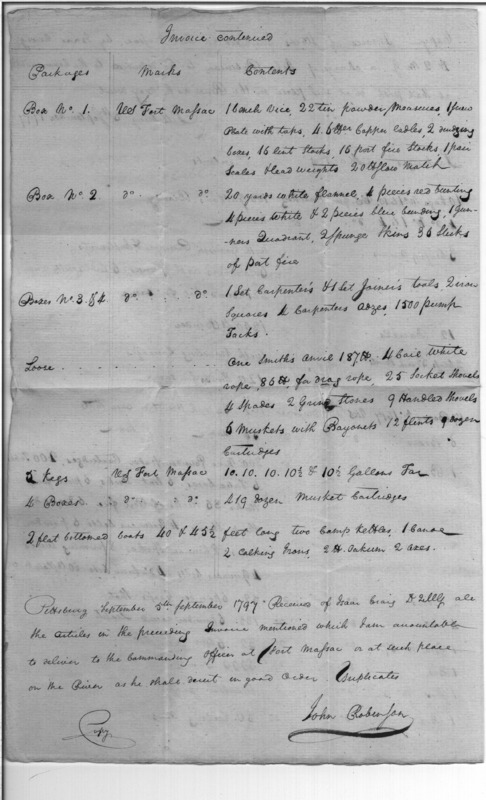 Invoice continued
Packages Marks Contents
Box No. 1. US Fort Massac 1 bench Vice, 22 tin powder Measures, 1 screw
plate with taps, 4. 6 lbr Copper ladles, 2 dredging
boxes, 16 lint Stocks, 16 port fire Stocks, 1 pair
Scales & lead weights 20 lb slow Match
Box No. 2 do do 20 yards White flannel, 4 pieces red bunting
4 pieces White & 2 pieces blue bunting, 1 Gun-
ners Quadrant, 2 spunge Skins 36 Sticks
of port fire
Boxes No. 3 & 4 do do 1 Set Carpenter's & 1 Set Joiner's tools 2 iron
Squares 4 Carpenters adzes, 1500 pump
Tacks.
Loose One Smiths Anvil 187 lb. 4 Coils White
rope, 86 lb for drag rope, 25 Socket Shovels
4 Spades 2 Grind Stones 9 Handled Shovels
6 Muskets with Bayonets 12 flints 9 dozen
Cartridges
5 Kegs US Fort Massac 10. 10. 10. 10½ & 10½ Gallons Tar
4 Boxes do do 419 dozen Musket Cartridges
2 flat bottomed boats 40 & 45½ feet long two Camp Kettles, 1 Canoe
2 Calking Irons, 2 lb. Oakum 2 axes.
Pittsburg September 5th September 1797. Received of Isaac Craig all
the articles in the preceding Invoice mentioned which I am accountable
to deliver to the Commanding Officer at Fort Massac or at such place
on the River as he shall direct in good Order. Duplicates
John Robinson
Copy